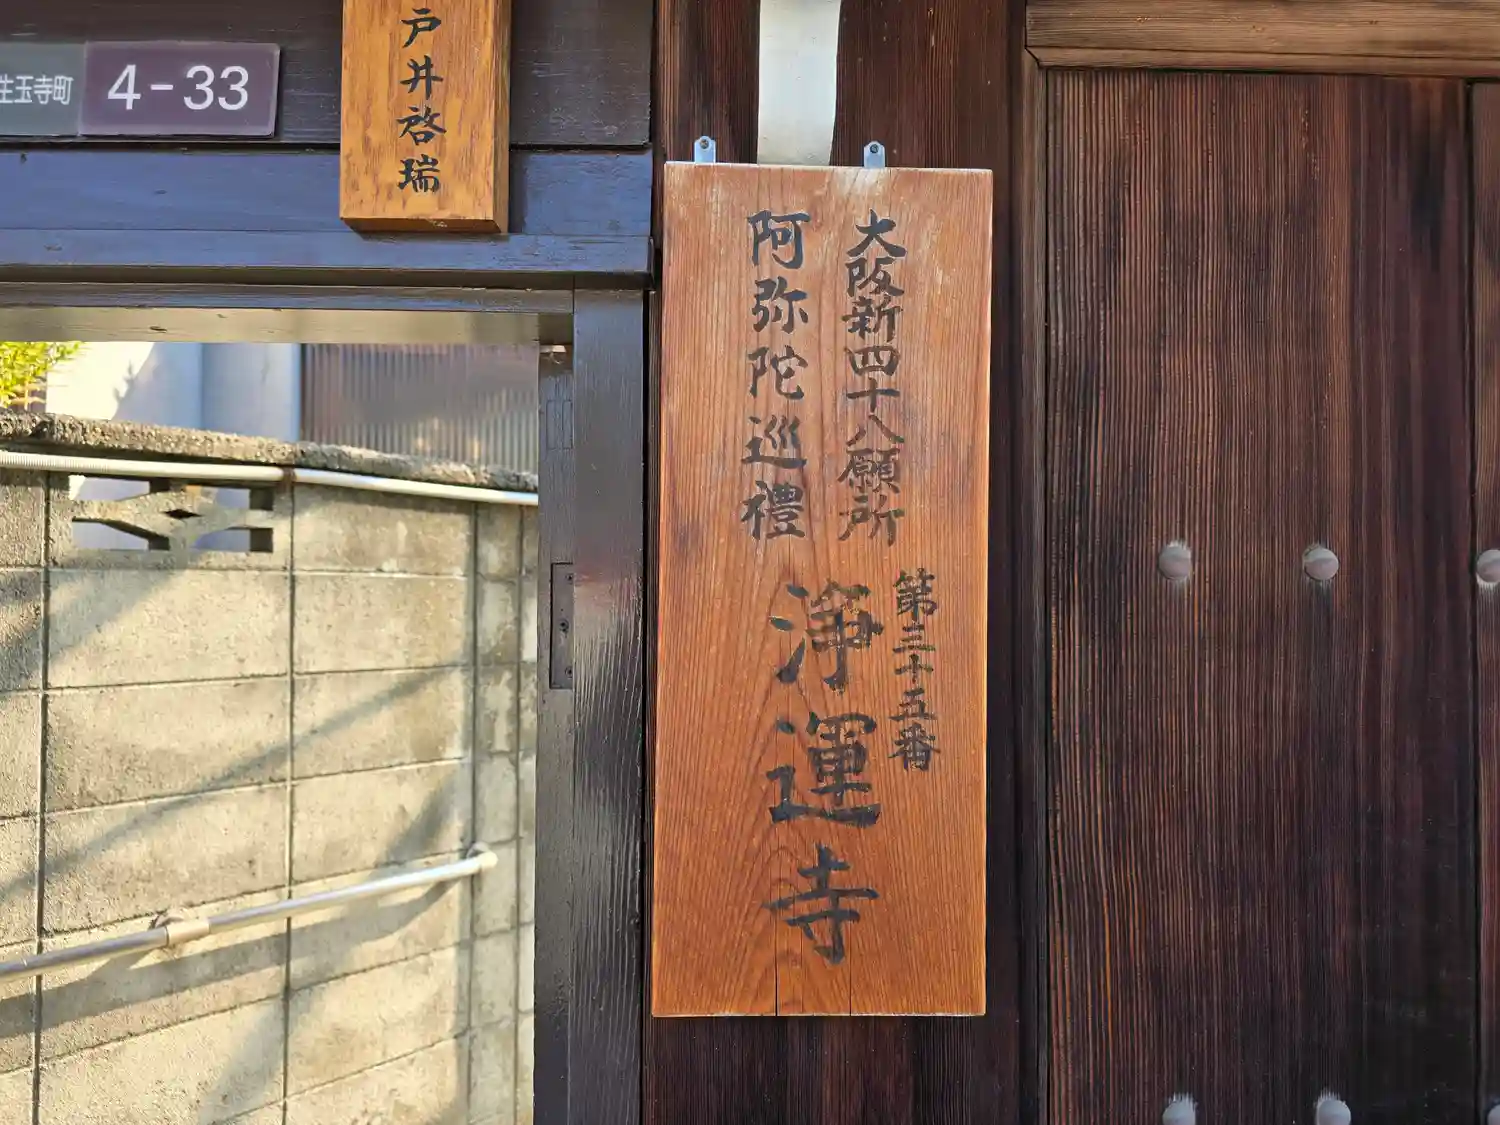 生玉寺町
4-33
戸井啓瑞
大阪新四十八願所
阿弥陀巡禮
第三十五番
浄運寺